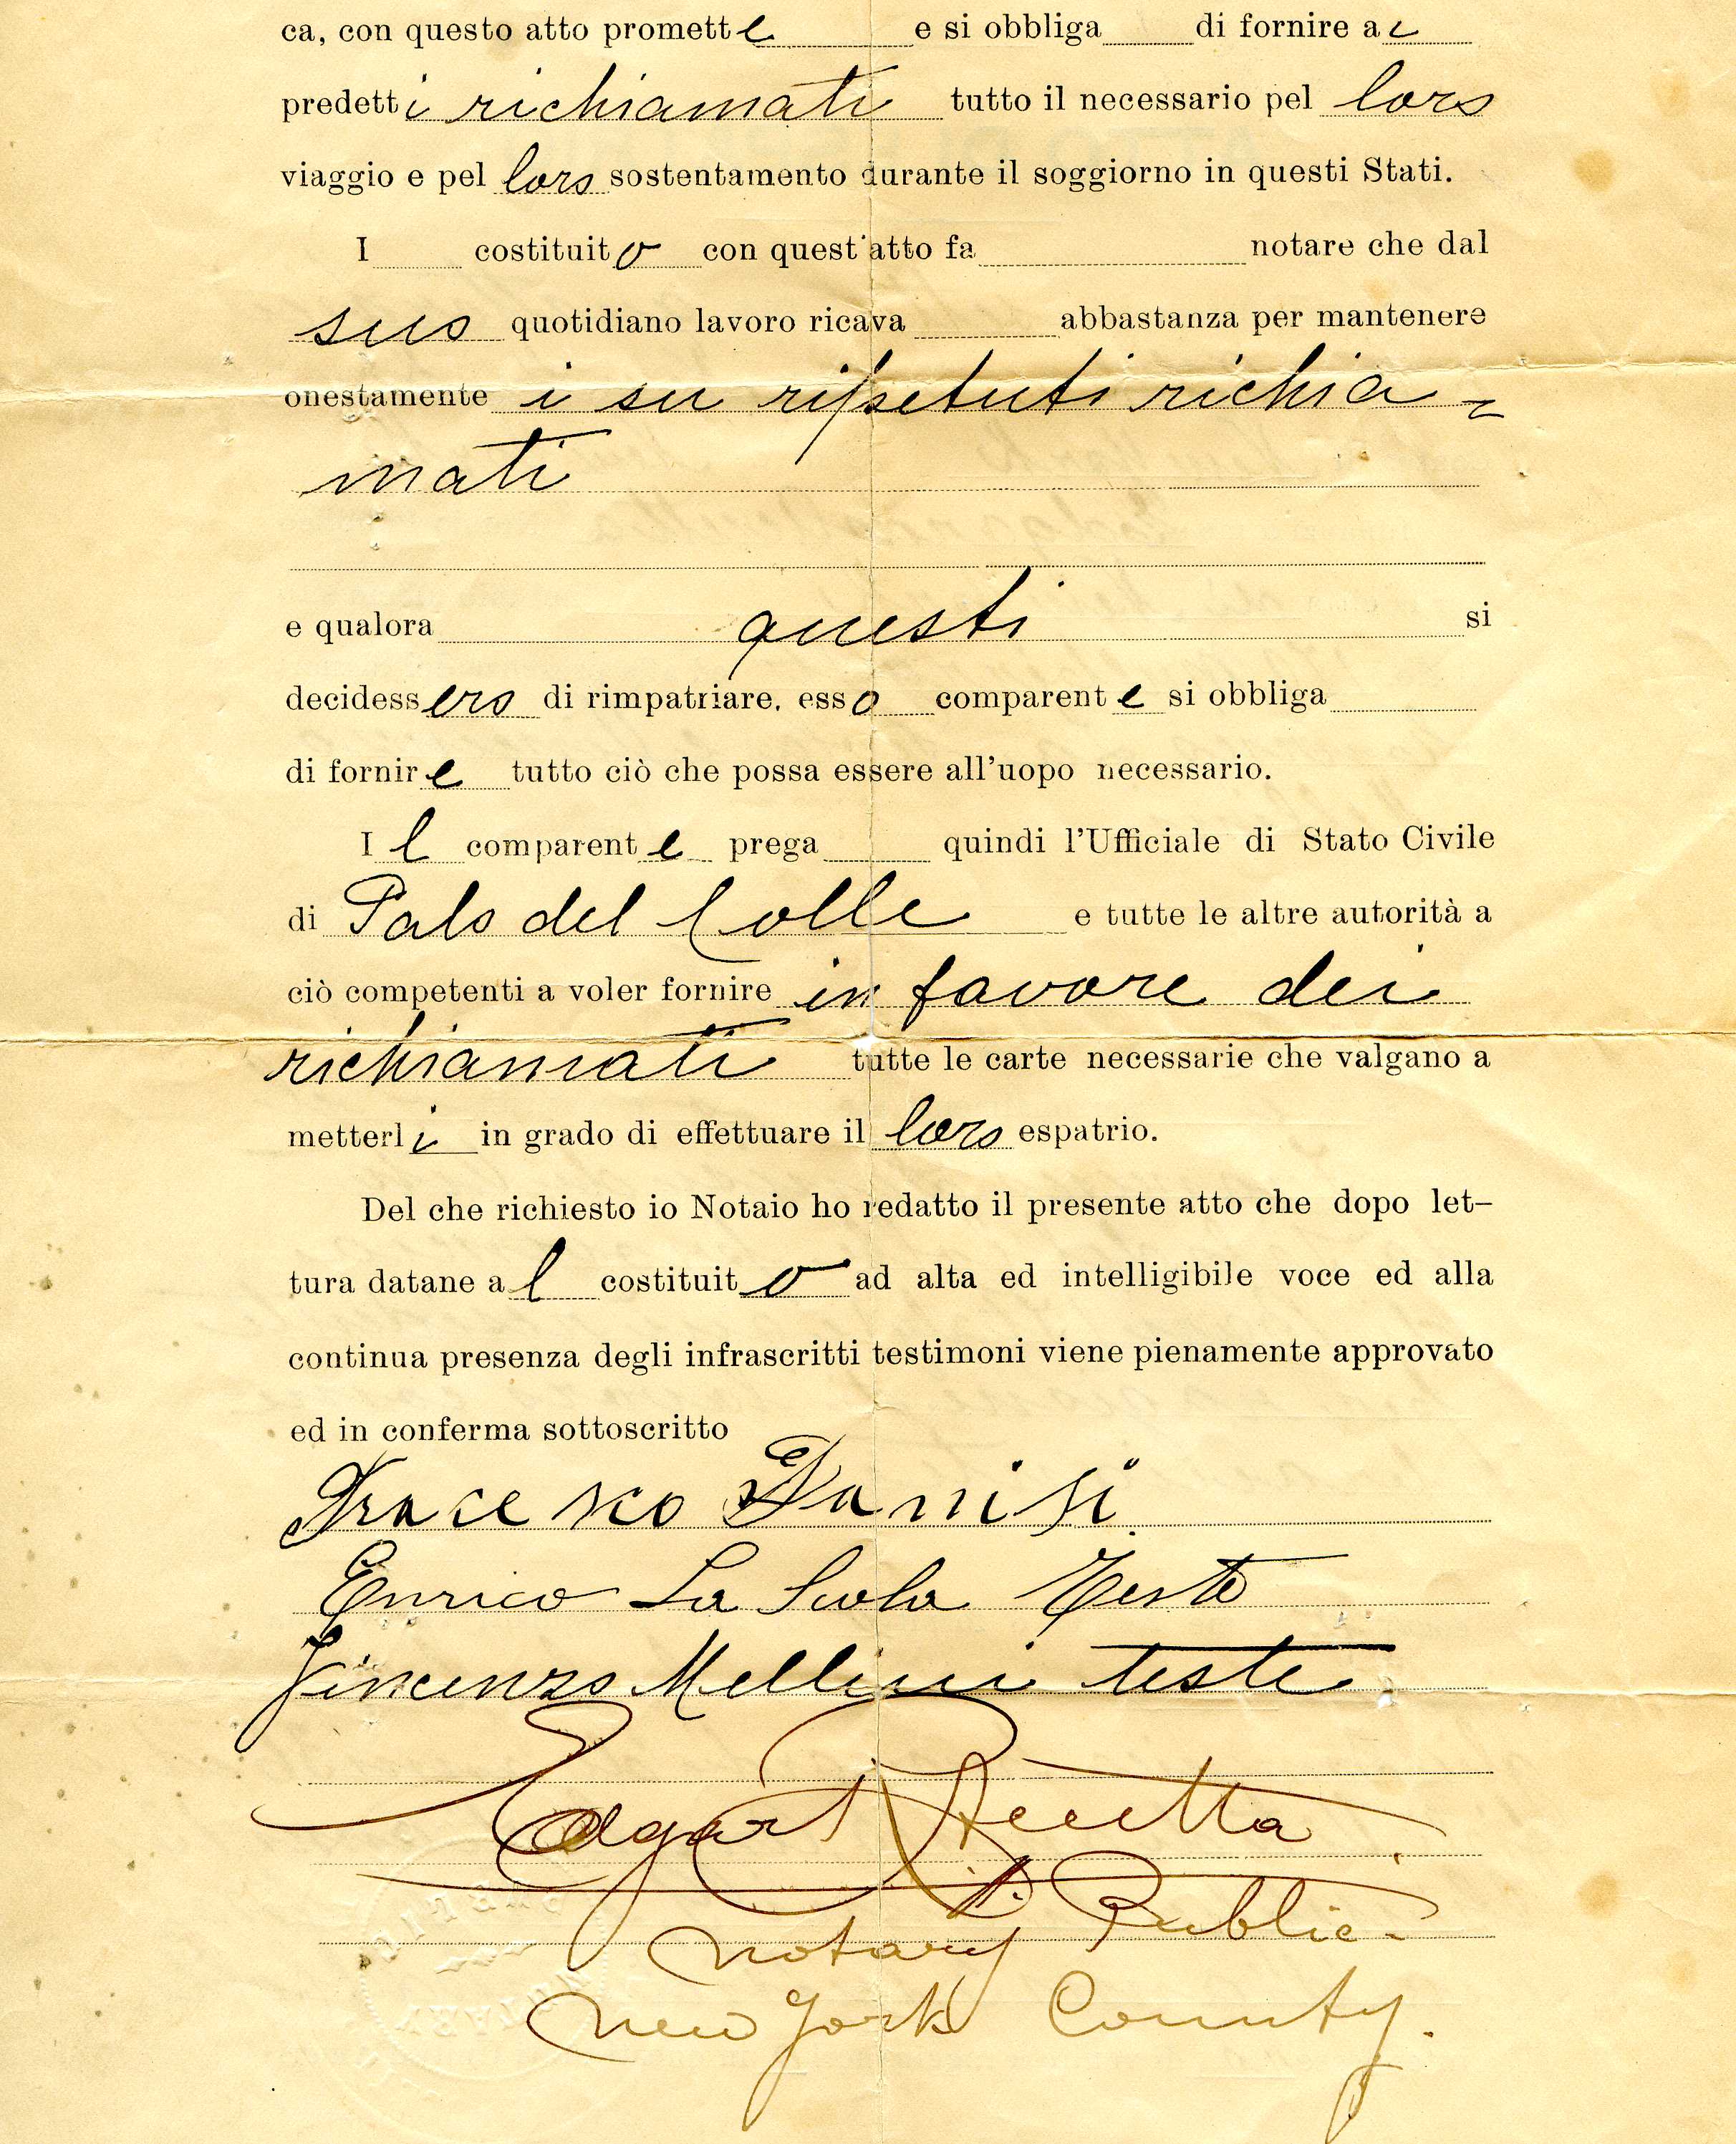 ca, con questo atto promette e si obbliga di fornire ai
predetti richiamati tutto il necessario pel loro
viaggio e pel loro sostentamento durante il soggiorno in questi Stati.
I costituito con quest'atto fa notare che dal
suo quotidiano lavoro ricava abbastanza per mantenere
onestamente i su ripetuti richia=
mati
e qualora questi si
decidessero di rimpatriare, esso comparente si obbliga
di fornire tutto ciò che possa essere all'uopo necessario.
Il comparente prega quindi l'Ufficiale di Stato Civile
di Palo del Colle e tutte le altre autorità a
ciò competenti a voler fornire in favore dei
richiamati tutte le carte necessarie che valgano a
metterli in grado di effettuare il loro espatrio.
Del che richiesto io Notaio ho redatto il presente atto che dopo let-
tura datane al costituito ad alta ed intelligibile voce ed alla
continua presenza degli infrascritti testimoni viene pienamente approvato
ed in conferma sottoscritto
Danisi
Enrico La Scola Teste
Vincenzo Mellini teste
Notary Public.
New York County.